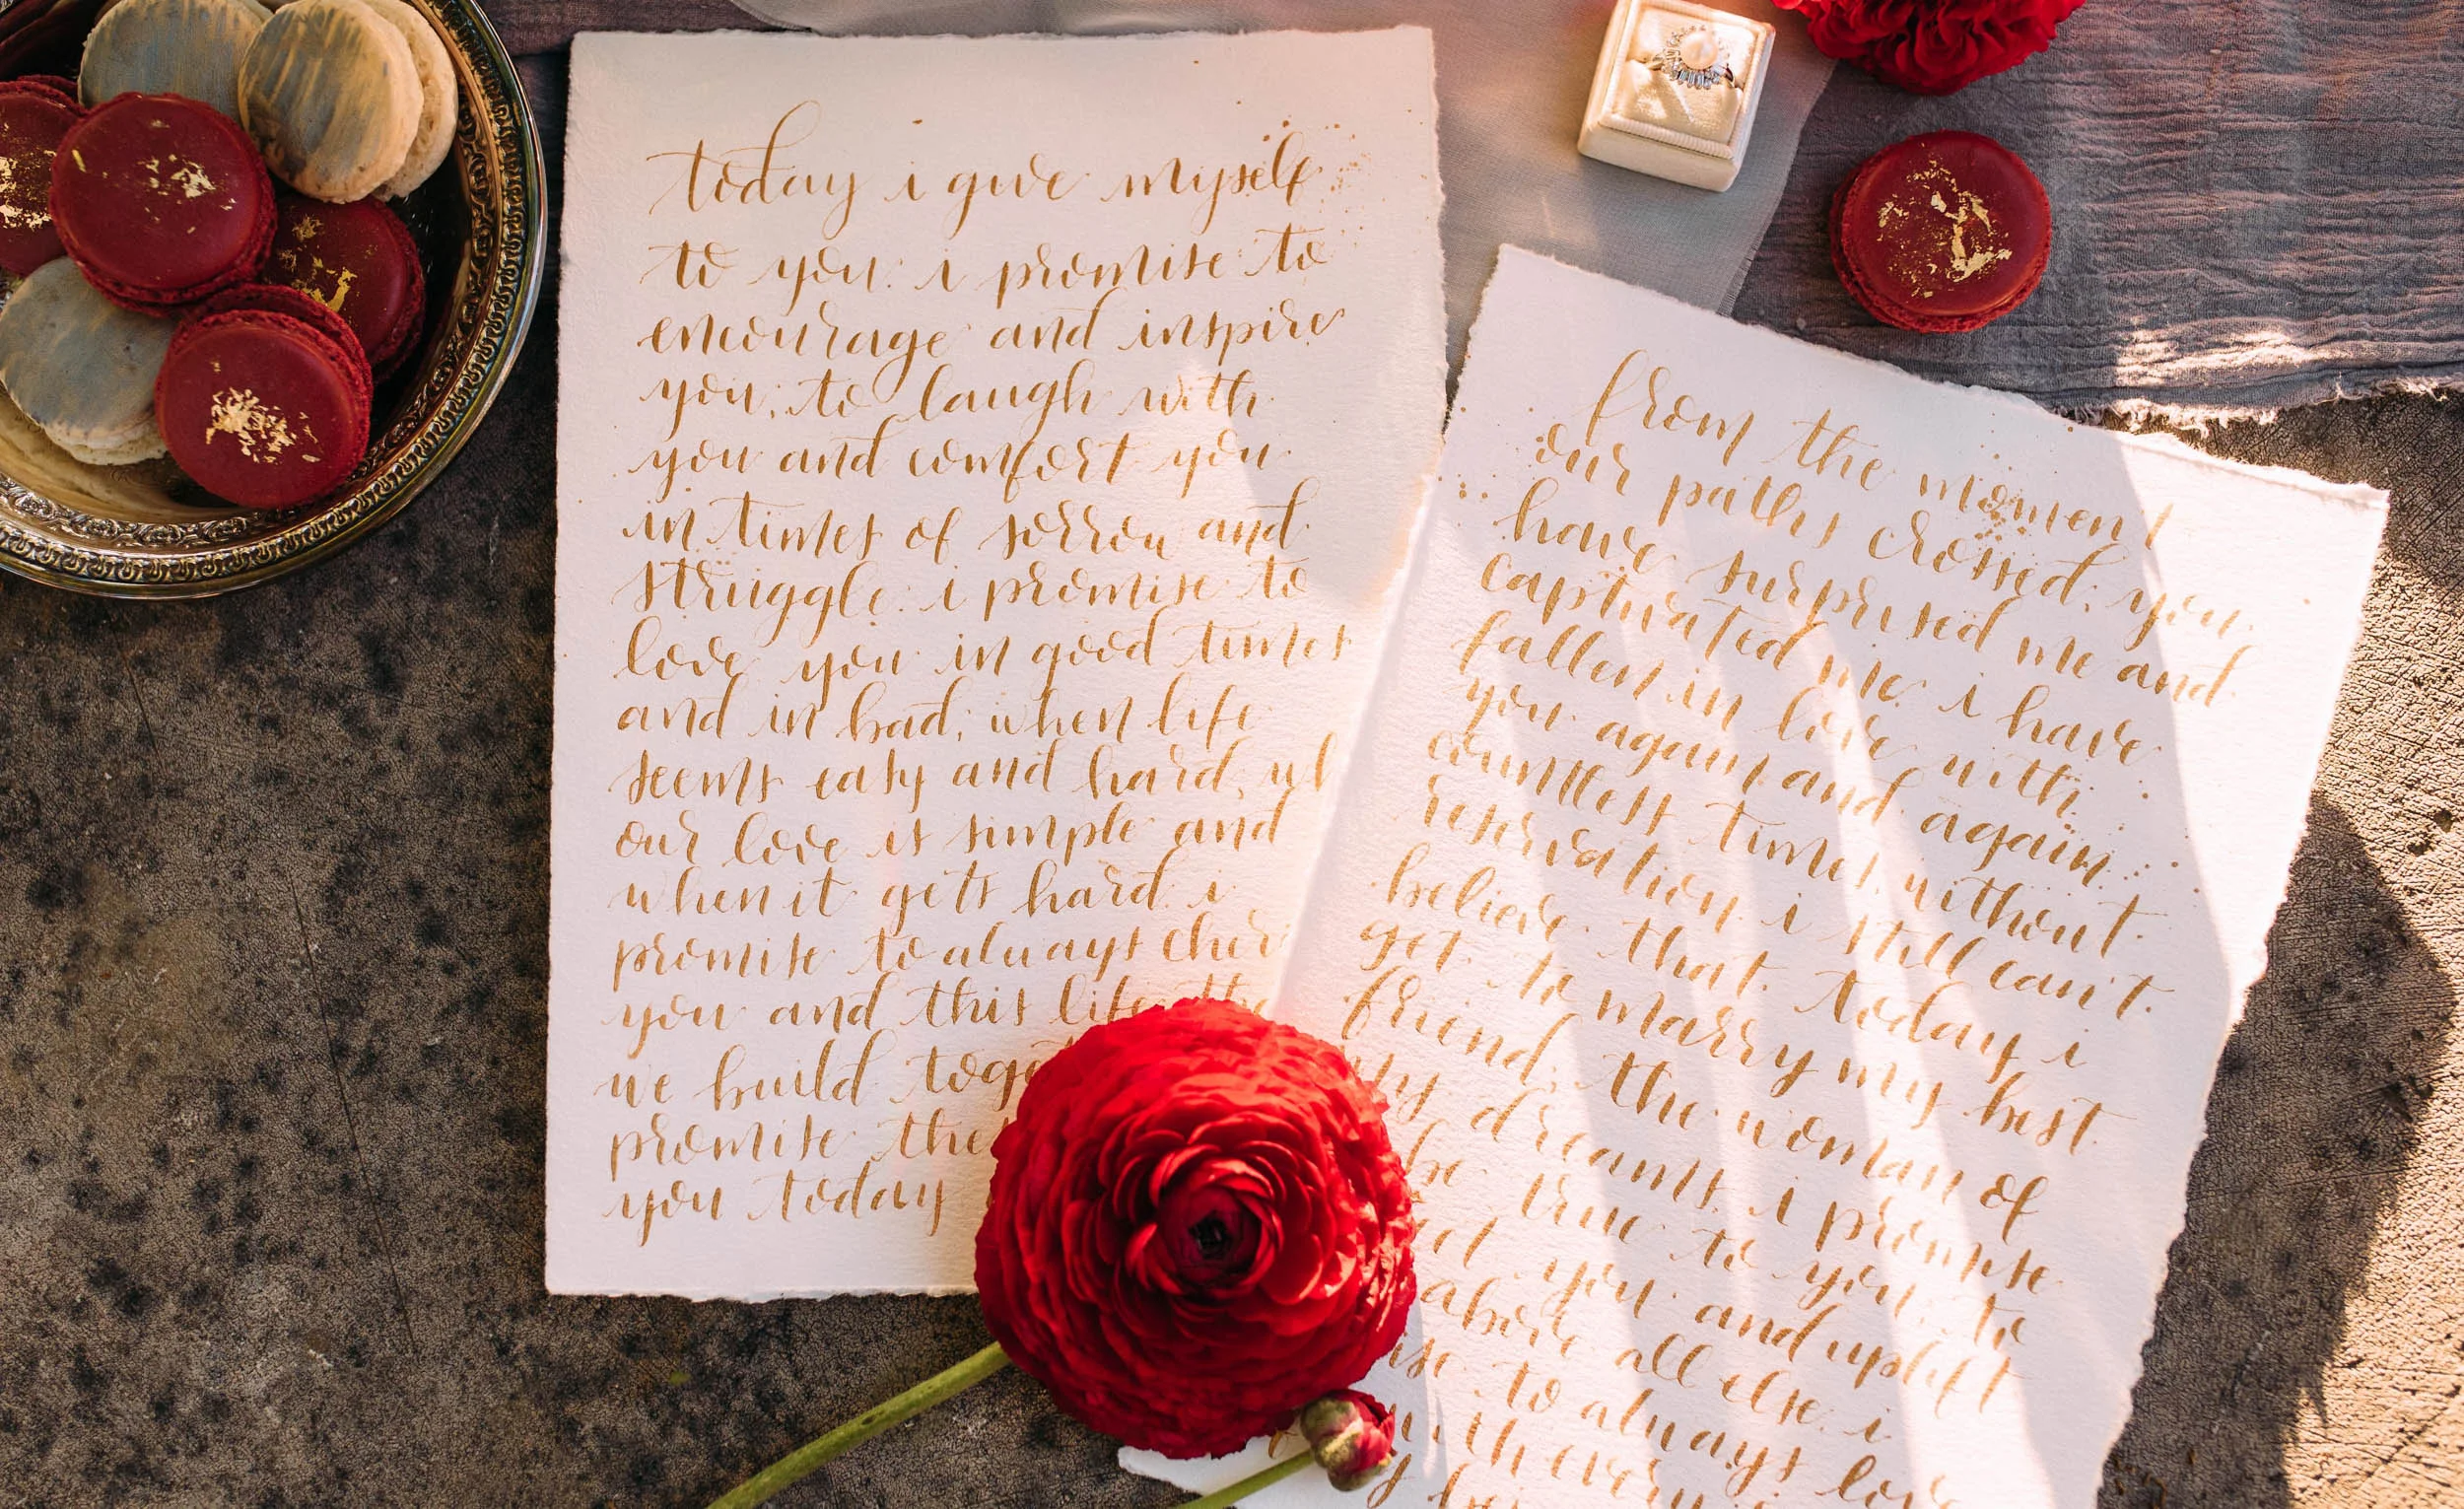 today i give myself
to you. i promise to
encourage and inspire
you, to laugh with
you and comfort you
in times of sorrow and
struggle. i promise to
love you in good times
and in bad, when life
seems easy and hard, wh
our love is simple and
when it gets hard. i
promise to always cheri
you and this life the
we build toge
promise the
you today
from the moment
our paths crossed, you
have surprised me and
captivated me. i have
fallen in love with
you again and again
countless times without
reservation. i still can't
believe that today i
get to marry my best
friend, the woman of
my dreams. i promise
be true to you, to
you and uplift
above all else. i
to always love
with every